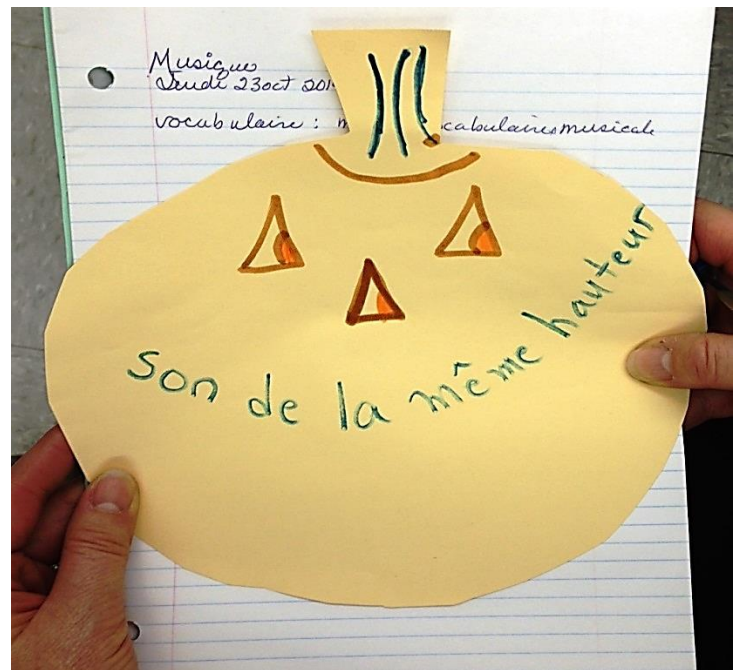 Musique
Jeudi 23 oct 201
vocabulaire : musicale
son de la même hauteur